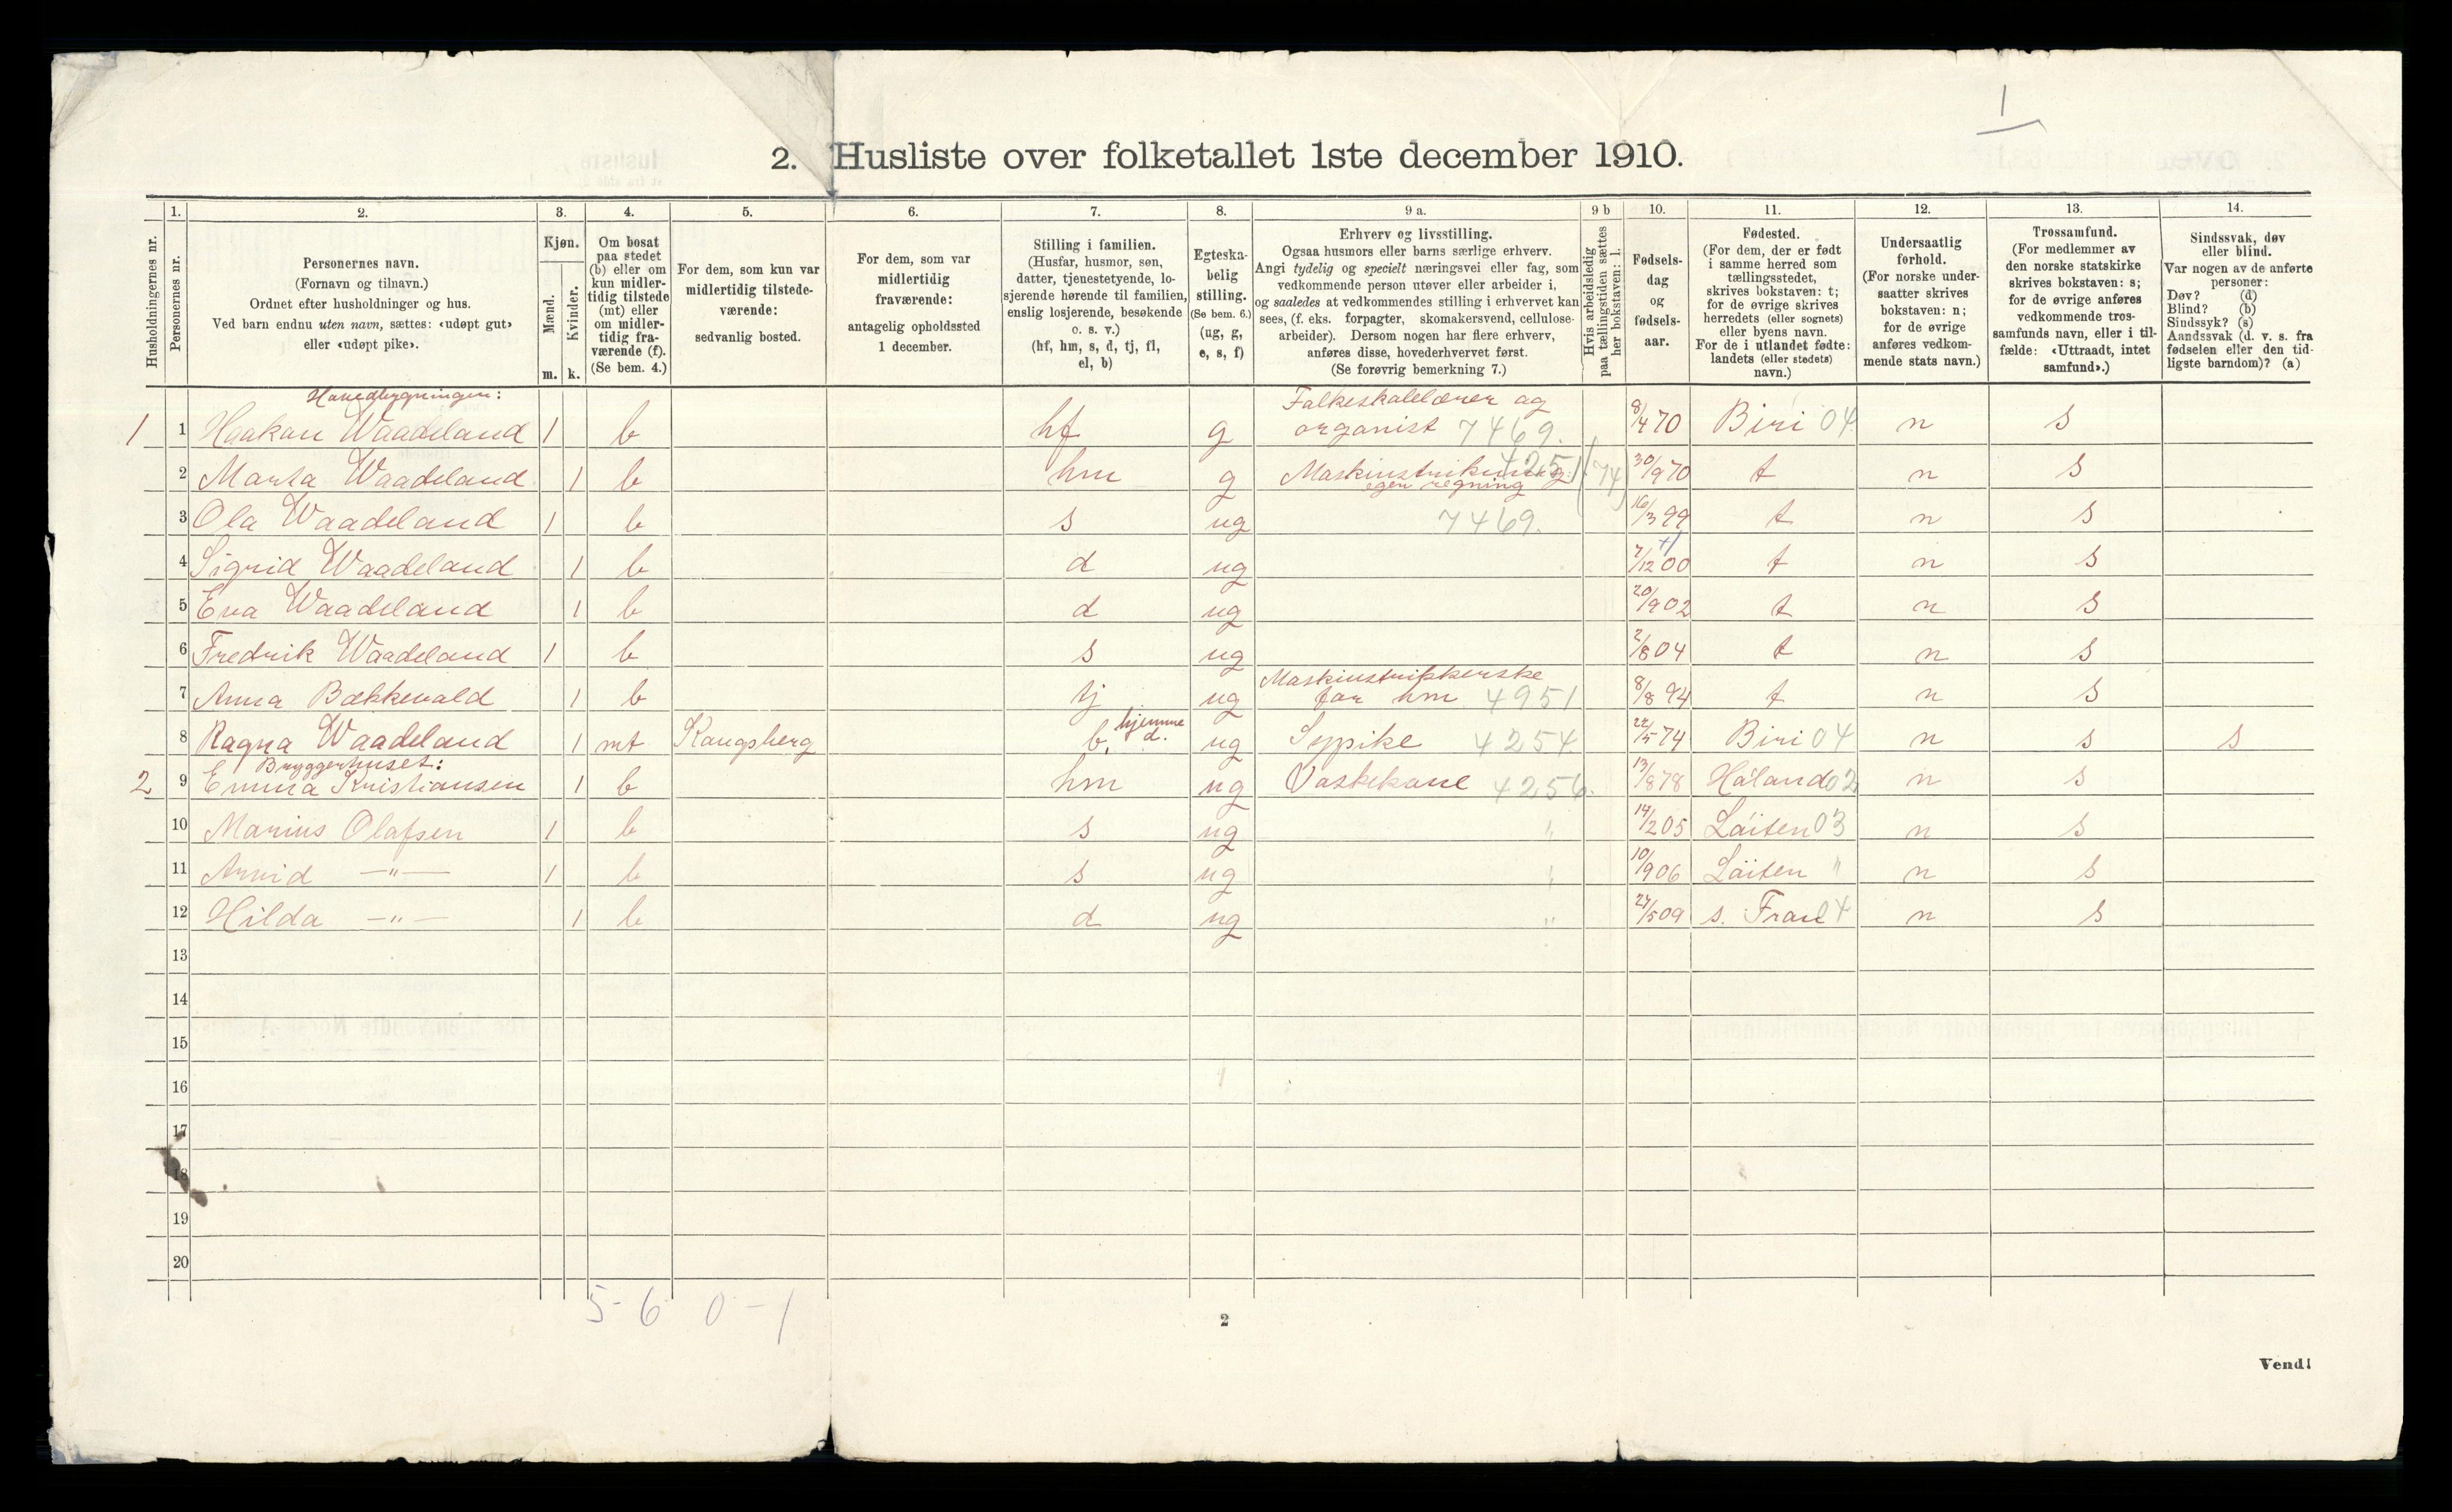 1
2. Husliste over folketallet 1ste december 1910.
Husholdningernes nr.
1.
Personernes nr.
2.
Personernes navn.
(Fornavn og tilnavn.)
Ordnet efter husholdninger og hus.
Ved barn endnu uten navn, sættes: «udøpt gut»
eller «udøpt pike».
3.
Kjøn.
Mænd.
Kvinder.
m. k.
4.
Om bosat
paa stedet
(b) eller om
kun midler-
tidig tilstede
(mt) eller
om midler-
tidig fra-
værende (f).
(Se bem. 4.)
5.
For dem, som kun var
midlertidig tilstede-
værende:
sedvanlig bosted.
6.
For dem, som var
midlertidig
fraværende:
antagelig opholdssted
1 december.
7.
Stilling i familien.
(Husfar, husmor, søn,
datter, tjenestetyende, lo-
sjerende hørende til familien,
enslig losjerende, besøkende
o. s. v.)
(hf, hm, s, d, tj, fl,
el, b)
8.
Egteska-
belig
stilling.
(Se bem. 6.)
(ug, g,
e, s, f)
9 a.
Erhverv og livsstilling.
Ogsaa husmors eller barns særlige erhverv.
Angi tydelig og specielt næringsvei eller fag, som
vedkommende person utøver eller arbeider i,
og saaledes at vedkommendes stilling i erhvervet kan
sees, (f. eks. forpagter, skomakersvend, cellulose-
arbeider). Dersom nogen har flere erhverv,
anføres disse, hovederhvervet først.
(Se forøvrig bemerkning 7.)
9 b
Hvis arbeidsledig
paa tællingstiden sættes
her bokstaven: l.
10.
Fødsels-
dag
og
fødsels-
aar.
11.
Fødested.
(For dem, der er født
i samme herred som
tællingsstedet,
skrives bokstaven: t;
for de øvrige skrives
herredets (eller sognets)
eller byens navn.
For de i utlandet fødte:
landets (eller stedets)
navn.)
12.
Undersaatlig
forhold.
(For norske under-
saatter skrives
bokstaven: n;
for de øvrige
anføres vedkom-
mende stats navn.)
13.
Trossamfund.
(For medlemmer av
den norske statskirke
skrives bokstaven: s;
for de øvrige anføres
vedkommende tros-
samfunds navn, eller i til-
fælde: «Uttraadt, intet
samfund».)
14.
Sindssvak, døv
eller blind.
Var nogen av de anførte
personer:
Døv? (d)
Blind? (b)
Sindssyk? (s)
Aandssvak (d. v. s. fra
fødselen eller den tid-
ligste barndom)? (a)
Hovedbygningen:
1 1 Haakan Waadeland 1 b hf g Folkeskolelærer og organist 7469. 8/4 70 Biri 04 n s
2 Marta Waadeland 1 b hm g Maskinstrikning egen regning 4251 (74) 30/9 70 t n s
3 Ola Waadeland 1 b s ug 7469. 16/3 99 t n s
4 Sigrid Waadeland 1 b d ug 7/12 00 t n s
5 Eva Waadeland 1 b d ug 20/9 02 t n s
6 Fredrik Waadeland 1 b s ug 2/8 04 t n s
7 Anna Bækkevald 1 b tj ug Maskinstrikkerske for hm 4951 8/8 94 t n s
8 Ragna Waadeland 1 mt Kongsberg b. hjemme d. ug Sypike 4254 22/5 74 Biri 04 n s s
Bryggerhuset:
2 9 Emma Kristiansen 1 b hm ug Vaskekone 4256. 13/8 78 Håland 02 n s
10 Marius Olafsen 1 b s ug " 14/2 05 Löiten 03 n s
11 Arvid —"— 1 b s ug " 10/9 06 Löiten " n s
12 Hilda —"— 1 b d ug " 27/5 09 s. Fron 04 n s
13
14
15
16
17
18
19
20
5 - 6 0 - 1
2
Vend!